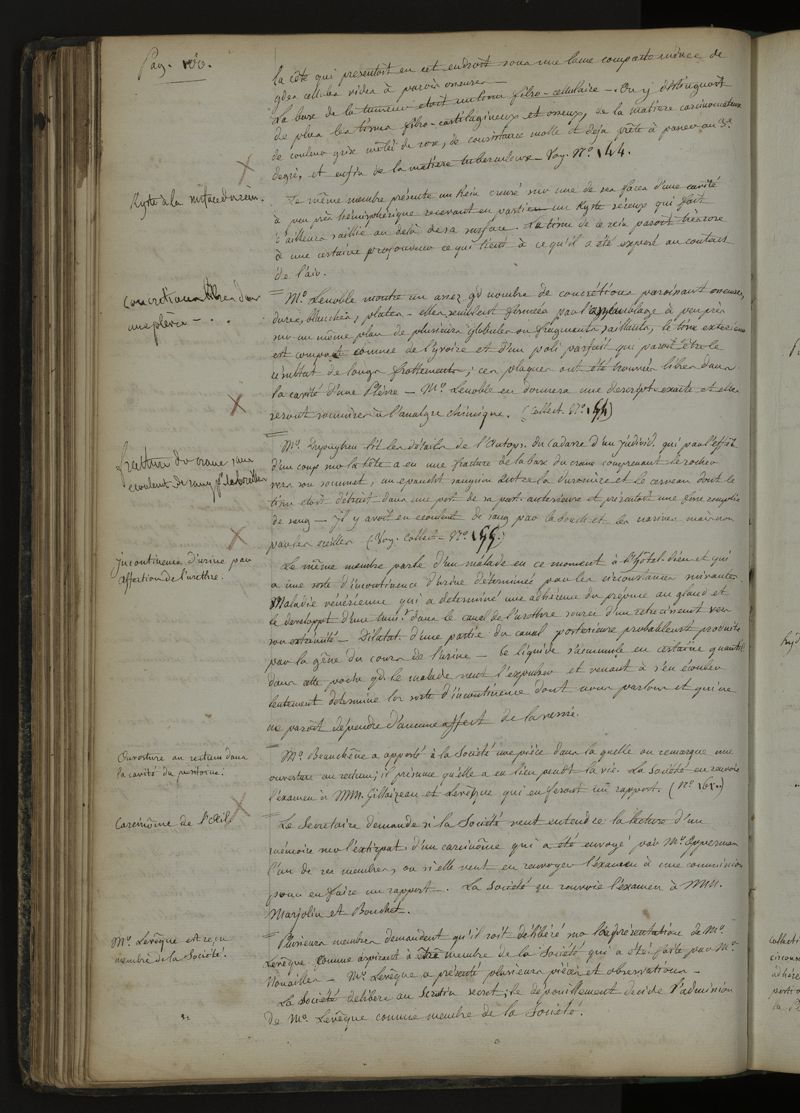 Pag. 100.
la côte qui présentoit en cet endroit sous une lame compacte mince de
gdes cellules vides à parois osseuses —
à la base de la tumeur etoit un tissu fibro-cellulaire — On y distinguoit
de plus les tissus fibro-cartilagineux et osseux, de la matière carcinomateuse
de couleur grise mêlée de rose, de consistance molle et déja prête à passer au 3e
degré, et enfin de la matiere tuberculeuse — Voy. No 144.
Kyste à la surface du rein.
Le même membre présente un Rein creusé sur une de ses faces d'une cavité
à peu près hémisphérique recevant en partie un Kyste séreux qui fait
d'ailleurs saillie au delà de sa surface. Le tissu de ce rein paroit
à une certaine profondeur ce qui tient à ce qu'il a été exposé au contact
de l'air.
Concretions libres dans
une plèvre — .
= Mr. Lenoble montre un assez gd nombre de concrétions paroissant osseuses,
dures, blanches, plates — elles semblent formées par l'assemblage à peu près
sur un même plan de plusieurs globules ou fragments saillants, le tissu exterieur
est compacte comme de l'yvoire et d'un poli parfait qui paroit être le
résultat de longs frottements; ces plaques ont été trouvées libres dans
la cavité d'une Plèvre — Mr. Lenoble en donnera une descript. exacte et elles
seront soumises à l'analyse chimique. (Collect. No 154)
fracture du crane sans
ecoulemt de sang pr les oreilles
= Mr. Dupuytren lit les détails de l'Autops. du cadavre d'un individ. qui par l'effet
d'un coup sur la tête a eu une fracture de la base du crane comprenant le rocher
vers son sommet, un epanchmt sanguin entre la duremère et le cerveau dont le
tissu etoit détruit dans une port. de sa part. anterieure et présentoit une cavité remplie
de sang — Il y avoit eu ecoulemt de sang par la bouche et les narines mais non
par les oreilles (Voy. Collect. No 155.)
Incontinence d'urine par
affection de l'urethre.
Le même membre parle d'un malade en ce moment à l'hôtel-dieu et qui
a une sorte d'incontinence d'urine déterminée par les circonstances suivantes
Maladie vénérienne qui a determiné une adhérence du prépuce au gland et
le developpt d'une tumr. dans le canal de l'urethre suivie d'un retrecissemt vers
son extrémité — Dilatat. d'une partie du canal posterieure probablemt produite
par la gêne du cours de l'urine — Le liquide s'accumule en certaine quantité
dans cette poche qd le malade veut l'expulser et venant à s'en écouler
lentement détermine la sorte d'incontinence dont nous parlons et qui ne
ne paroit dépendre d'aucune affect. de la vessie.
Ouverture au rectum dans
la cavité du peritoine.
= Mr. Beauchêne a apporté à la Société une pièce dans la quelle on remarque une
ouverture au rectum; il présume qu'elle a eu lieu pendt la vie. La Société en renvoie
l'examen à MM. Gillaizeau et Levêque qui en feront un rapport. (No 161.)
Carcinôme de l'Œil.
= Le Secretaire demande si la Société veut entendre la lecture d'un
mémoire sur l'extirpat. d'un carcinôme qui a été envoyé par Mr. Opperman
l'un de ses membres, ou si elle veut en renvoyer l'examen à une commission
pour en faire un rapport. La Société en renvoie l'examen à MM.
Marjolin et Bouchet.
Mr. Levêque est reçu
membre de la Société.
= Plusieurs membres demandent qu'il soit délibéré sur la représentation de Mr.
Levêque comme aspirant à être membre de la Société qui a été faite par Mr.
Nouailles — Mr. Levêque a présenté plusieurs pièces et observations —
La Société délibere au Scrutin secret; le dépouillement decide l'admission
de Mr. Levêque comme membre de la Société.